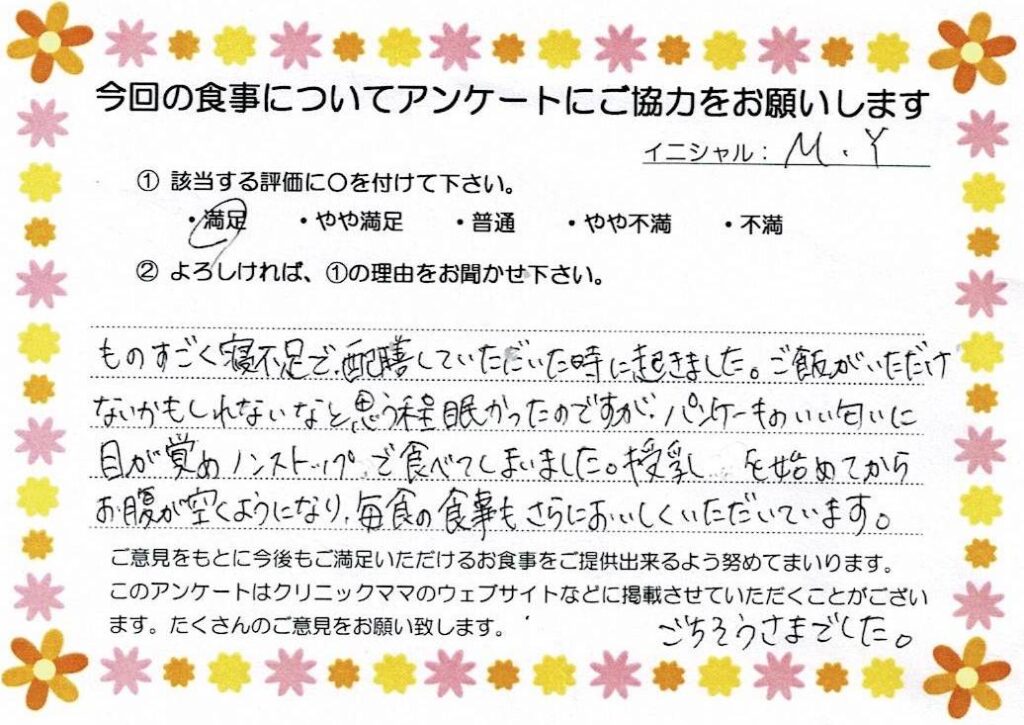 今回の食事についてアンケートにご協力をお願いします
イニシャル： M.Y
① 該当する評価に〇を付けて下さい。
・満足 ・やや満足 ・普通 ・やや不満 ・不満
② よろしければ、①の理由をお聞かせ下さい。
ものすごく寝不足で、配膳していただいた時に起きました。ご飯がいただけ
ないかもしれないなと思う程眠かったのですが、パンケーキのいい匂いに
目が覚めノンストップで食べてしまいました。授乳 を始めてから
お腹が空くようになり、毎食の食事もさらにおいしくいただいています。
ご意見をもとに今後もご満足いただけるお食事をご提供出来るよう努めてまいります。
このアンケートはクリニックママのウェブサイトなどに掲載させていただくことがござい
ます。たくさんのご意見をお願い致します。
ごちそうさまでした。